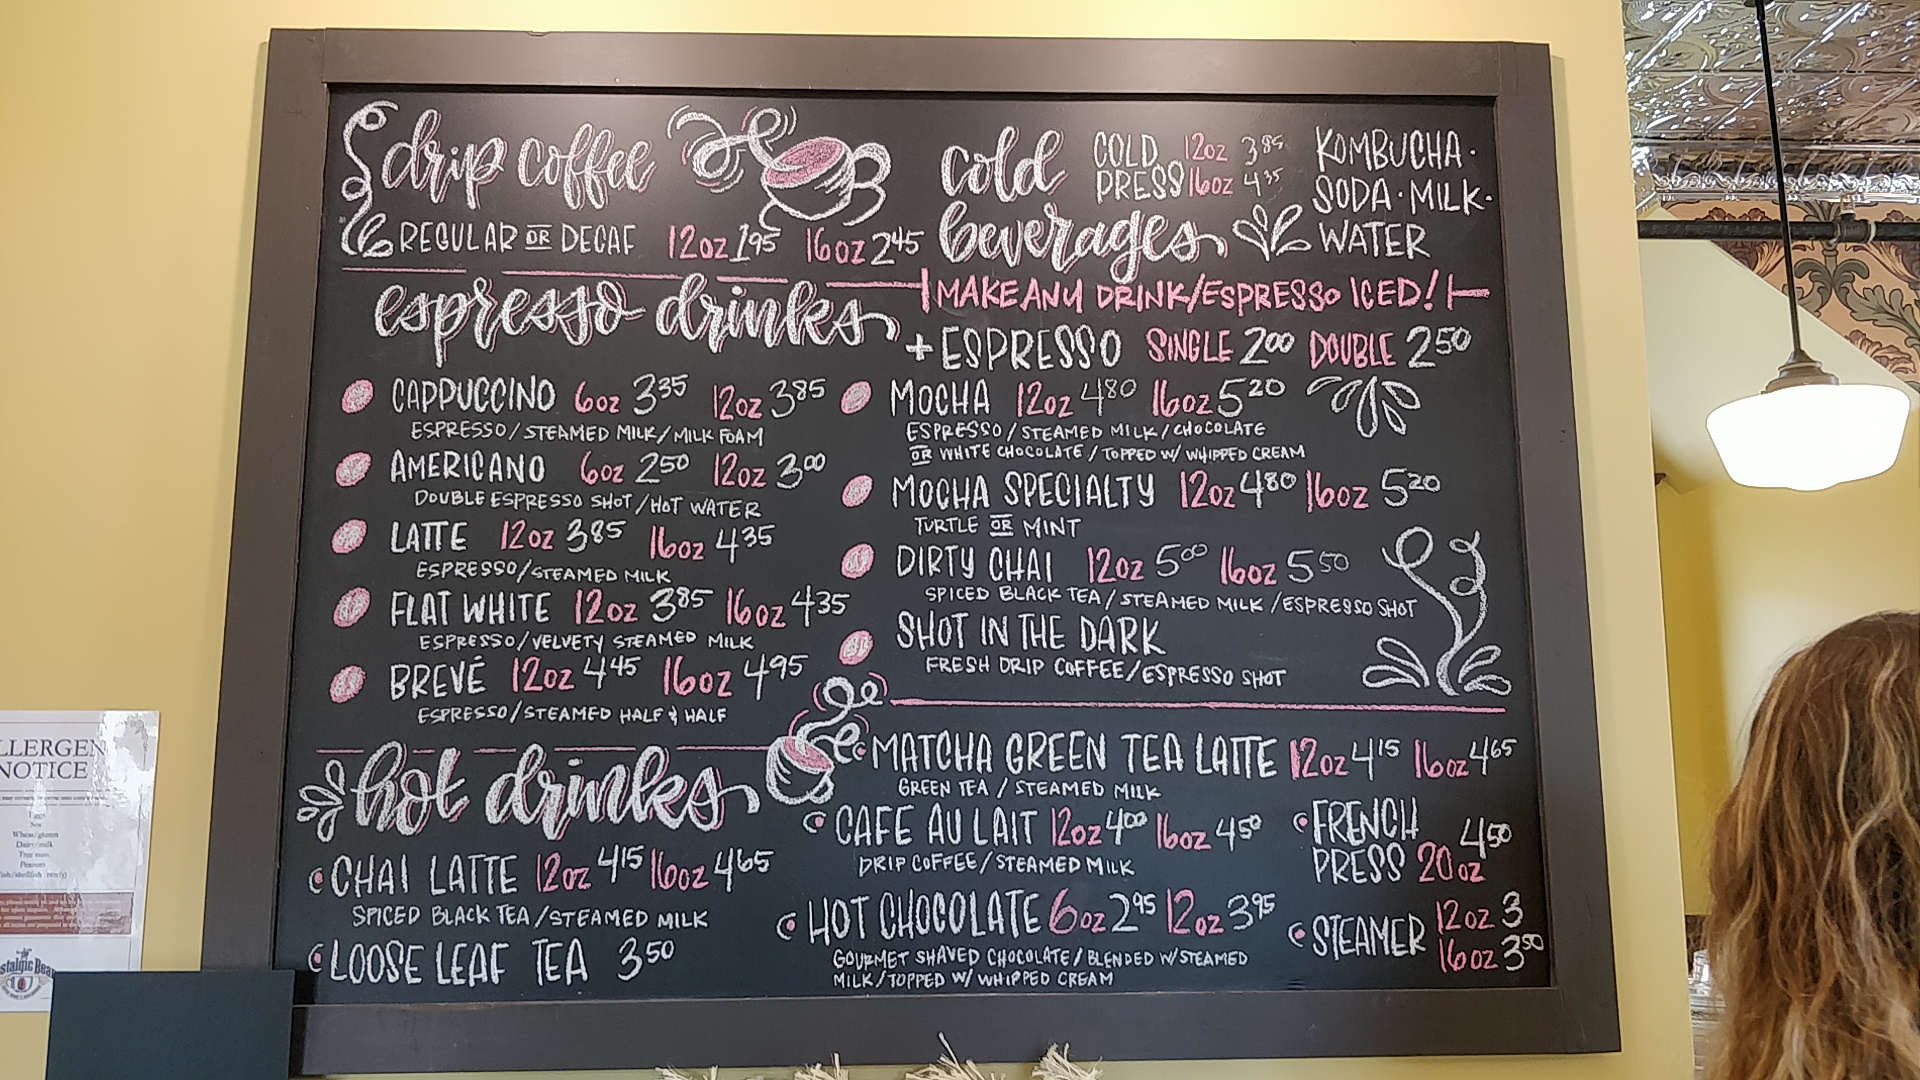 drip coffee
REGULAR OR DECAF 12oz 1.95 16oz 2.45
cold beverages
COLD PRESS 12oz 3.85
16oz 4.35
KOMBUCHA ·
SODA · MILK ·
WATER
MAKE ANY DRINK/ESPRESSO ICED!
espresso drinks
+ ESPRESSO SINGLE 2.00 DOUBLE 2.50
CAPPUCCINO 6oz 3.35 12oz 3.85
ESPRESSO/STEAMED MILK/MILK FOAM
AMERICANO 6oz 2.50 12oz 3.00
DOUBLE ESPRESSO SHOT/HOT WATER
LATTE 12oz 3.85 16oz 4.35
ESPRESSO/STEAMED MILK
FLAT WHITE 12oz 3.85 16oz 4.35
ESPRESSO/VELVETY STEAMED MILK
BREVÉ 12oz 4.45 16oz 4.95
ESPRESSO/STEAMED HALF & HALF
MOCHA 12oz 4.80 16oz 5.20
ESPRESSO/STEAMED MILK/CHOCOLATE
OR WHITE CHOCOLATE/TOPPED W/ WHIPPED CREAM
MOCHA SPECIALTY 12oz 4.80 16oz 5.20
TURTLE OR MINT
DIRTY CHAI 12oz 5.00 16oz 5.50
SPICED BLACK TEA/STEAMED MILK/ESPRESSO SHOT
SHOT IN THE DARK
FRESH DRIP COFFEE/ESPRESSO SHOT
hot drinks
CHAI LATTE 12oz 4.15 16oz 4.65
SPICED BLACK TEA/STEAMED MILK
LOOSE LEAF TEA 3.50
MATCHA GREEN TEA LATTE 12oz 4.15 16oz 4.65
GREEN TEA/STEAMED MILK
CAFE AU LAIT 12oz 4.00 16oz 4.50
DRIP COFFEE/STEAMED MILK
HOT CHOCOLATE 6oz 2.95 12oz 3.95
GOURMET SHAVED CHOCOLATE/BLENDED W/STEAMED
MILK/TOPPED W/ WHIPPED CREAM
FRENCH
PRESS 20oz 4.50
STEAMER 12oz 3
16oz 3.50
LLERGEN
NOTICE
Eggs
Soy
Wheat/gluten
Dairy/milk
Tree nuts
Peanuts